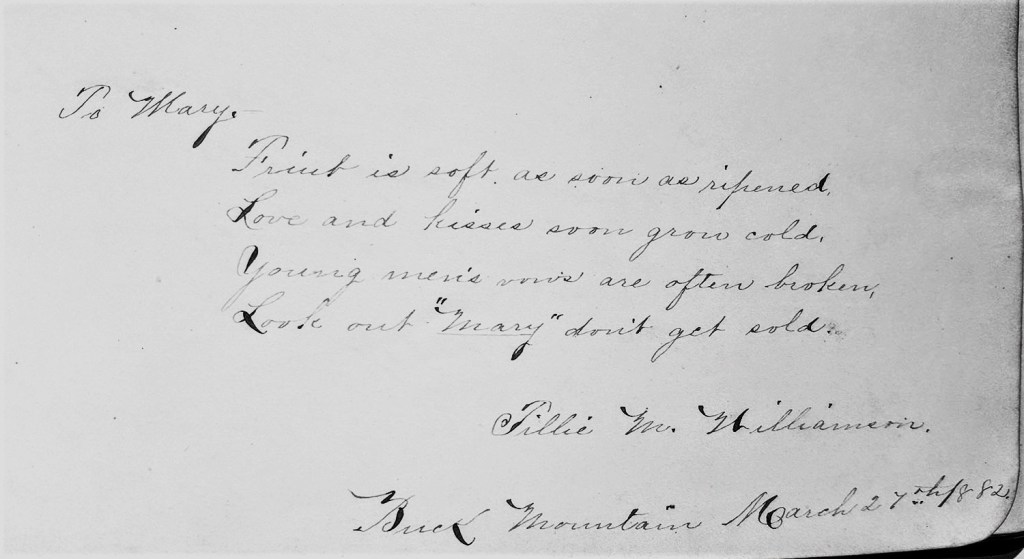 To Mary.
Friut is soft. as soon as ripened.
Love and kisses soon grow cold.
Young men's vows are often broken,
Look out "Mary" don't get sold.
Tillie M. Williamson.
Buck Mountain March 27th/882.